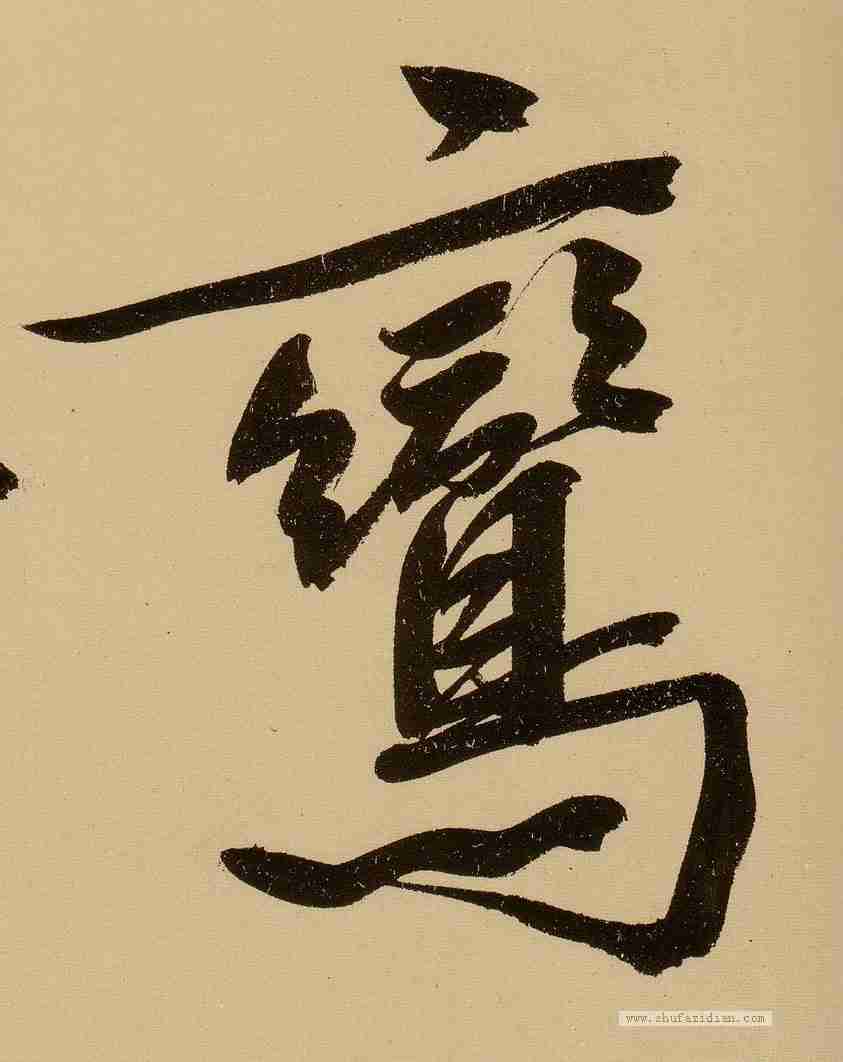 鸞
www.shufazidian.com